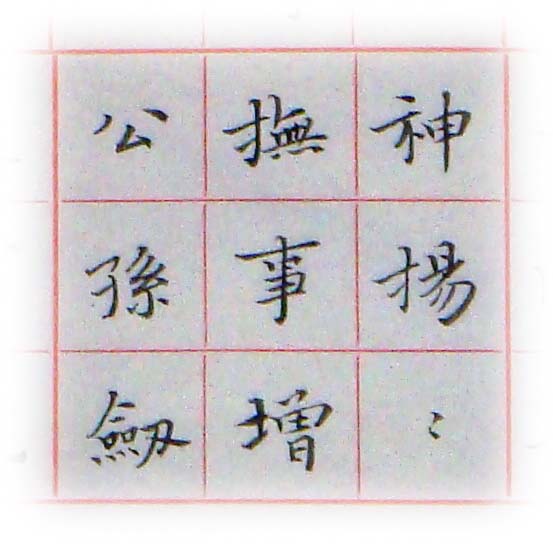 神揚〻
撫事增
公孫劒